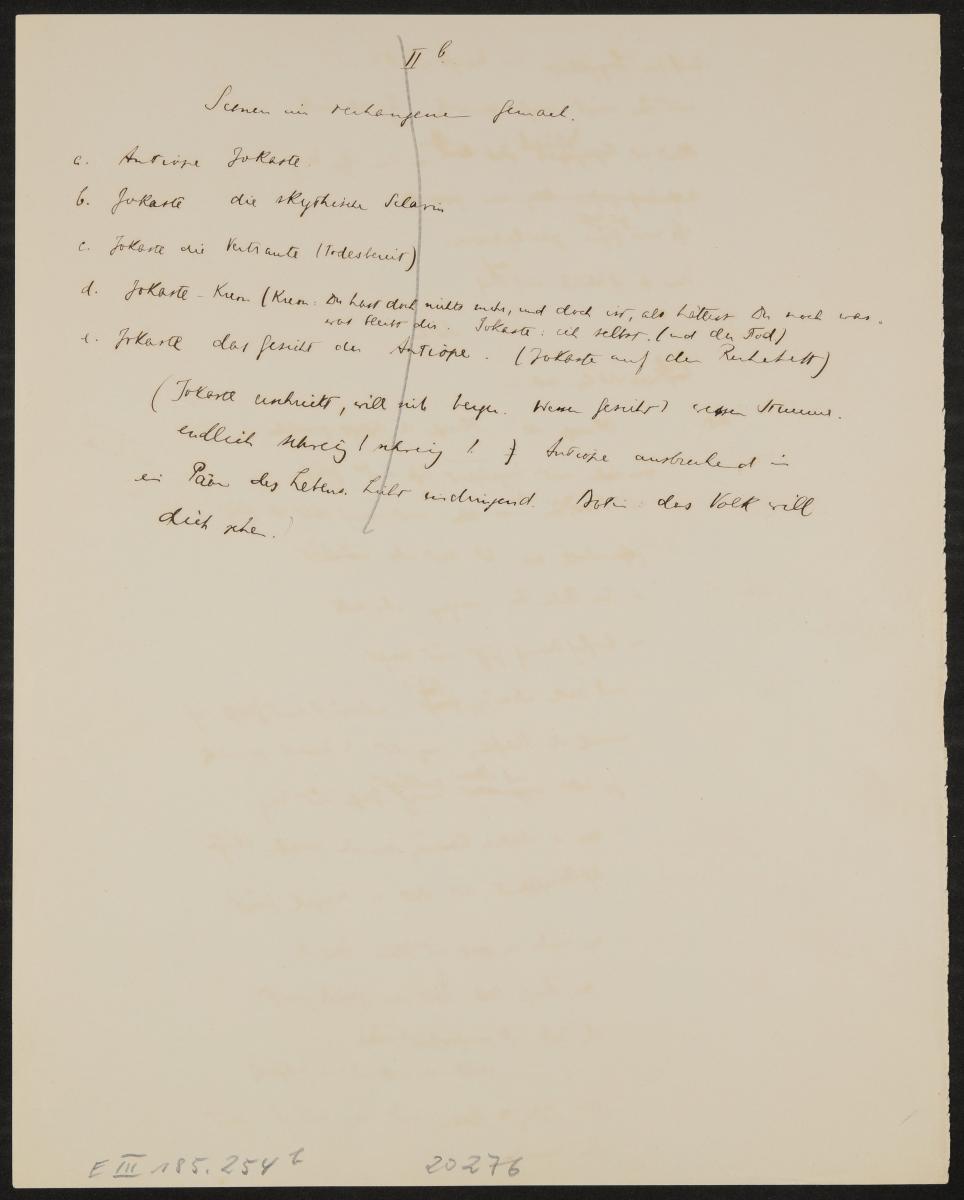 II b
Scenen im verhangenen Gemach.
a. Antiope Jokaste.
b. Jokaste die skythische Sclavin
c. Jokaste die Vertraute (Todesbereit)
d. Jokaste – Kreon (Kreon: Du hast doch nichts mehr, und doch ist, als hättest Du noch was.
was bleibt dir. Jokaste: ich selbst. (und der Tod)
e. Jokaste das Gesicht der Antiope. (Jokaste auf dem Ruhebett)
(Jokaste erschrickt, will sich bergen. Wessen Gesicht) wessen Stimme.
endlich schweig! schweig!) Antiope ausbrechend in
ein Päan des Lebens. Licht eindringend. Botin: das Volk will
dich sehen.)
E III 185.254 b 20276